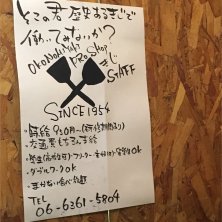 そこの君 歴史あるきじで
働いてみないか?
OKONOMIYAKI PRO SHOP
きじ
STAFF
SINCE 1954
・時給 950円〜(研修期間あり)
・交通費もちろん支給
・学生(高校生可)・フリーター・主婦(夫)・留学生OK
・ダブルワークOK
・まかない食べ放題
TEL
06-6361-5804